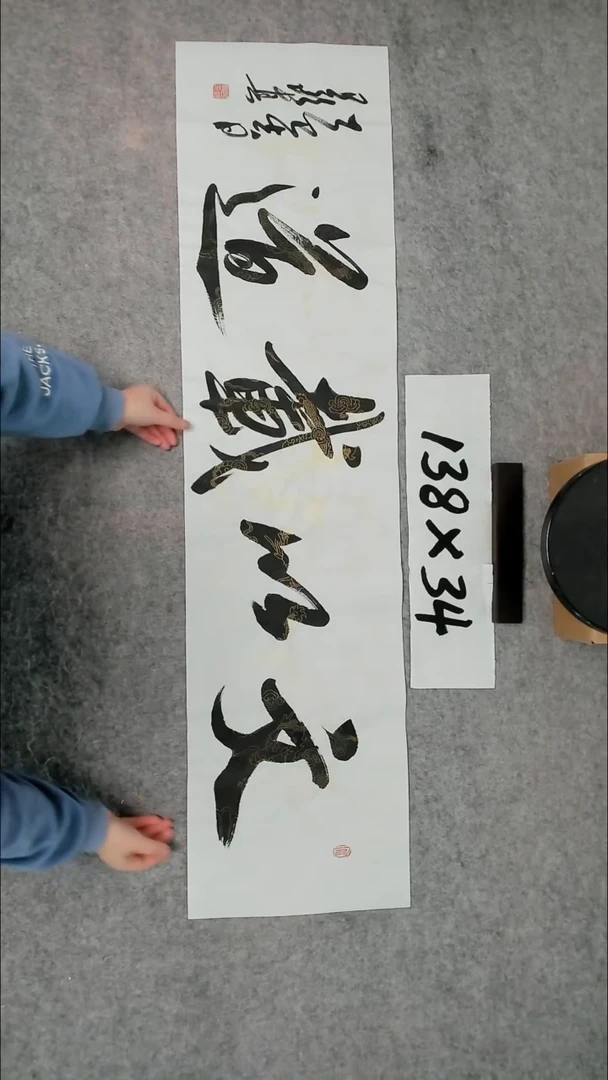 文以載道
138×34
JACKS